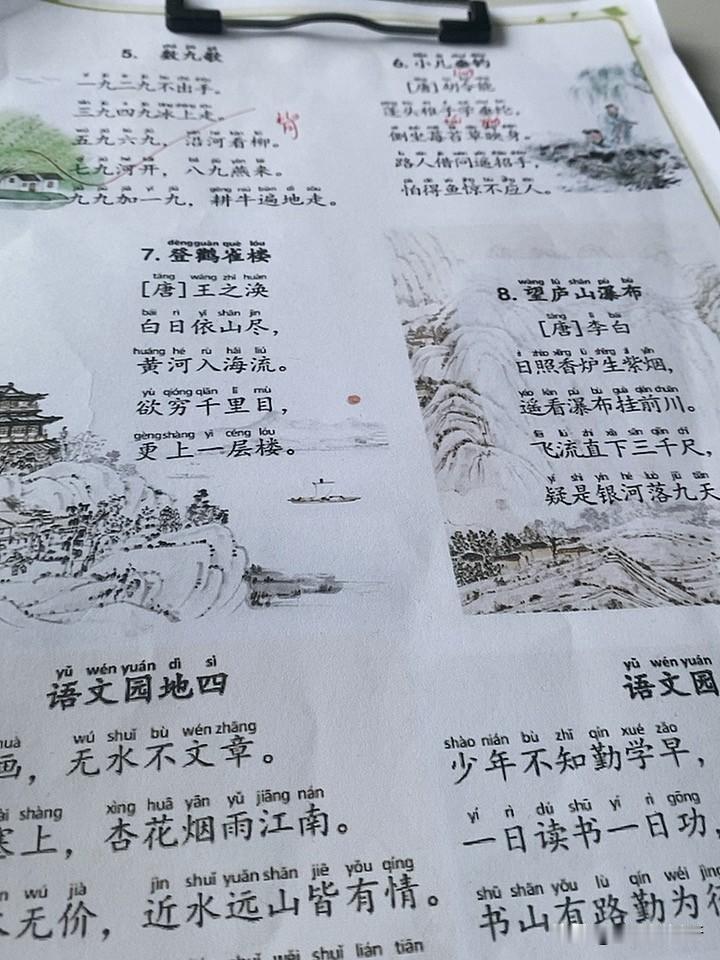 5. 数九歌
一九二九不出手。
三九四九冰上走。
五九六九，沿河看柳。
七九河开，八九燕来。
九九加一九，耕牛遍地走。
背
6. 小儿垂钓
[唐]胡令能
蓬头稚子学垂纶，
侧坐莓苔草映身。
路人借问遥招手，
怕得鱼惊不应人。
dēng guàn què lóu
7. 登鹳雀楼
táng wáng zhī huàn
[唐]王之涣
bái rì yī shān jìn
白日依山尽，
huáng hé rù hǎi liú
黄河入海流。
yù qióng qiān lǐ mù
欲穷千里目，
gèng shàng yì céng lóu
更上一层楼。
wàng lú shān pù bù
8. 望庐山瀑布
táng lǐ bái
[唐]李白
rì zhào xiāng lú shēng zǐ yān
日照香炉生紫烟，
yáo kàn pù bù guà qián chuān
遥看瀑布挂前川。
fēi liú zhí xià sān qiān chǐ
飞流直下三千尺，
yí shì yín hé luò jiǔ tiān
疑是银河落九天
yǔ wén yuán dì sì
语文园地四
huà wú shuǐ bù wén zhāng
画，无水不文章。
sài shàng xìng huā yān yǔ jiāng nán
塞上，杏花烟雨江南。
wú jià jìn shuǐ yuǎn shān jiē yǒu qíng
无价，近水远山皆有情。
shuǐ lián tiān
yǔ wén yuán
语文园
shào nián bù zhī qín xué zǎo
少年不知勤学早，
yí rì dú shū yí rì gōng
一日读书一日功，
shū shān yǒu lù qín wéi jìng
书山有路勤为径